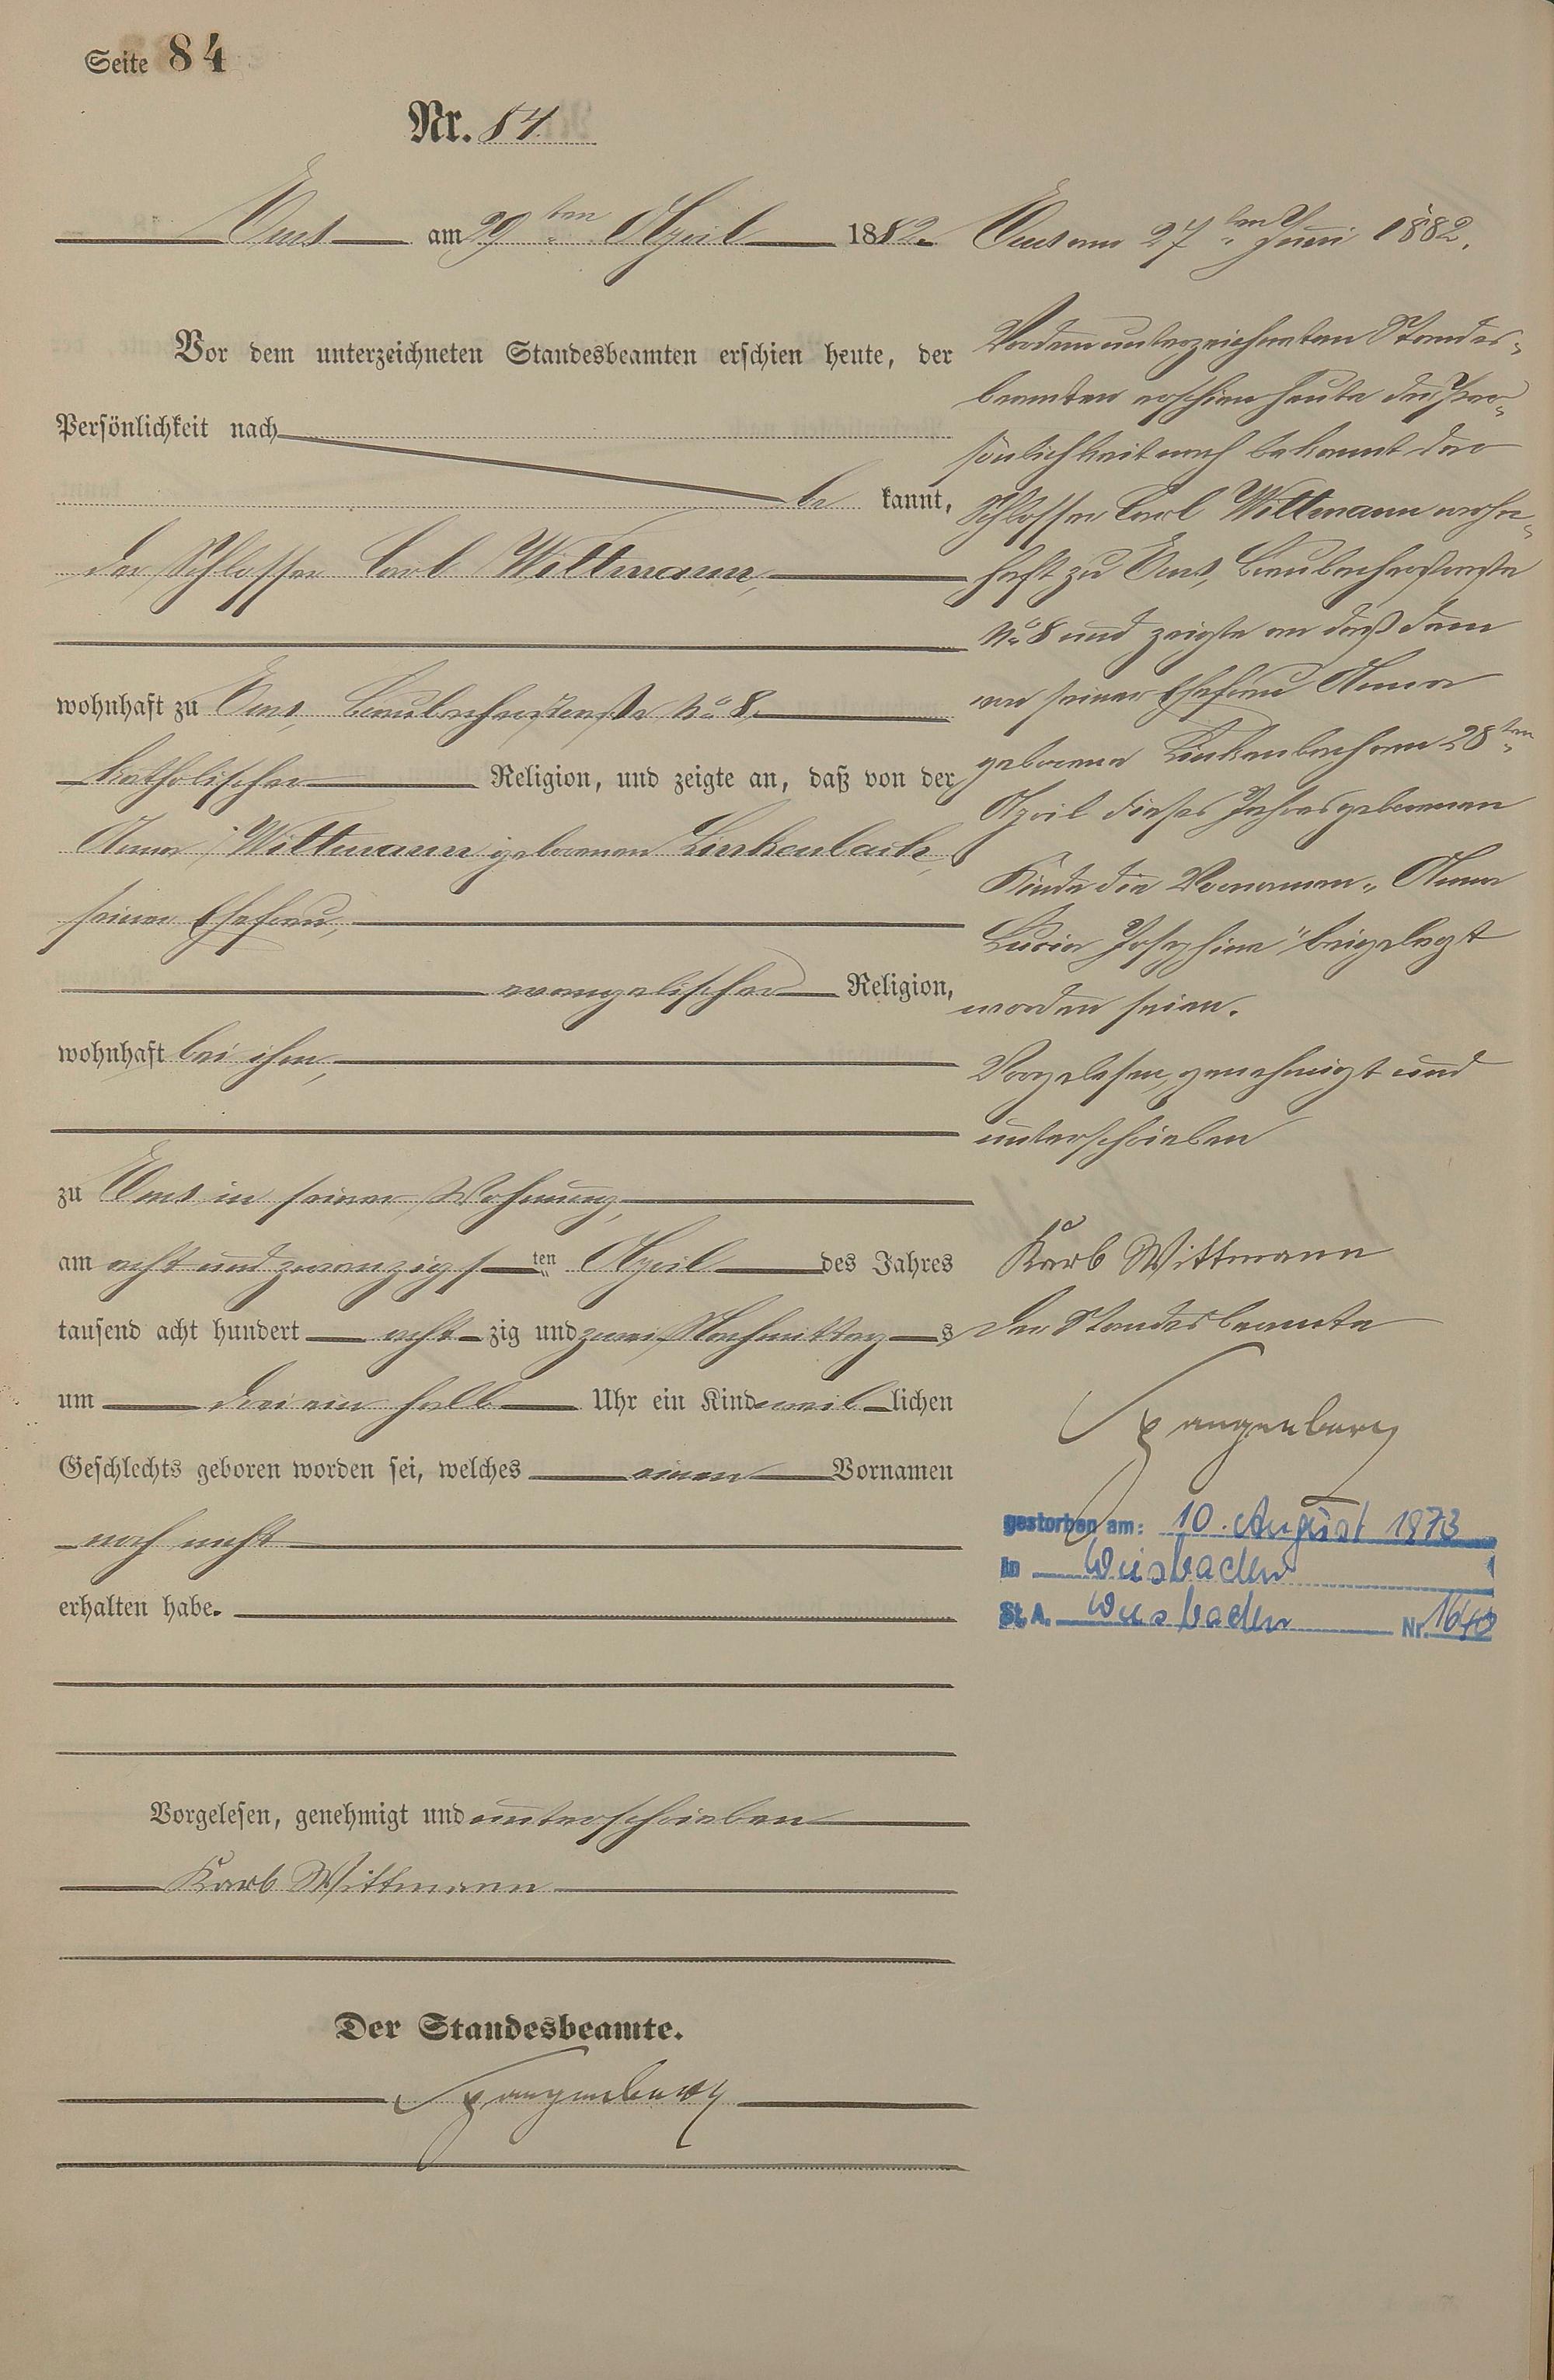 Seite 84
Nr. 84.
Ems am 29ten April 1882.
Vor dem unterzeichneten Standesbeamten erschien heute, der
Persönlichkeit nach
be kannt,
der Schlosser Carl Wittmann,
wohnhaft zu Ems, Braubacherstraße No 8,
katholischer Religion, und zeigte an, daß von der
Anna Wittmann geborenen Linkenbach,
seiner Ehefrau,
evangelischer Religion,
wohnhaft bei ihm,
zu Ems in seiner Wohnung,
am acht und zwanzigsten April des Jahres
tausend acht hundert acht zig und zwei Nachmittags
um drei ein halb Uhr ein Kind weiblichen
Geschlechts geboren worden sei, welches einen Vornamen
noch nicht
erhalten habe.
Vorgelesen, genehmigt und unterschrieben
Karl Wittmann
Der Standesbeamte.
Spangenberg
Ems am 27ten Juni 1882.
Vor dem unterzeichneten Standes-
beamten erschien heute der Per-
sönlichkeit nach bekannt der
Schlosser Carl Wittmann wohn-
haft zu Ems, Braubacherstraße
No 8 und zeigte an daß dem
von seiner Ehefrau Anna
geborene Linkenbach am 28ten
April dieses Jahres geborenen
Kinde die Vornamen "Anna
Lucia Josephine" beigelegt
worden seien.
Vorgelesen, genehmigt und
unterschrieben
Karl Wittmann
Der Standesbeamte
Spangenberg
gestorben am: 10. August 1973
in Wiesbaden
St. A. Wiesbaden Nr. 1640